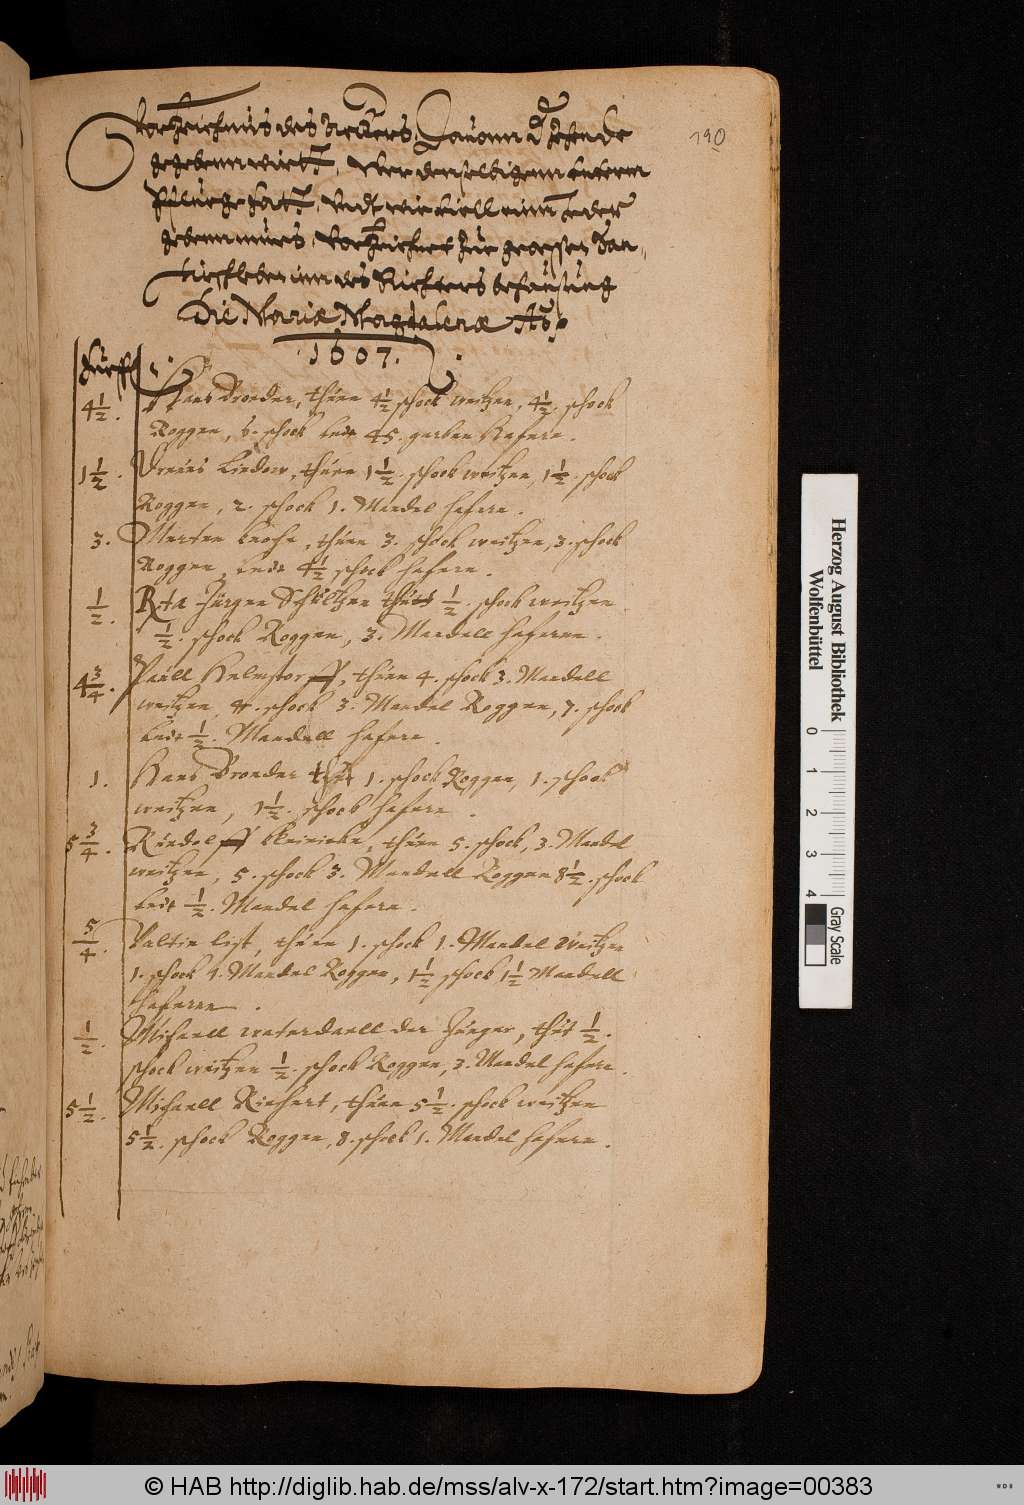 Vorzeichnus des Ackers, Dauonn d Zehende
gegebenn wirtt, Wer denselbigenn unterm
Pfluege hatt, Vndt wie viell einn Jeder
gebenn mues, Vorzeichnet zur grossen
inn des Richters behausung
Die Mariæ Magdalenæ Aō
1607.
190
Hueff
4½. Hans Broeder, thuen 4½ schock weitzen, 4½. schock
Roggen, 6. schock undt 45. garben Hafern.
1½. Drews Lindow, thuen 1½. schock weitzen, 1½. schock
Roggen, 2. schock 1. Mandel hafern.
3. Merten, thuen 3. schock weitzen, 3. schock
Roggen, undt 4½ schock hafern.
½. Jürgen Schultzen thuet ½. schock weitzen
½. schock Roggen, 3. Mandell hafernn.
4¾. Paull Helmstorff, thuen 4. schock 3. Mandell
weitzen, 4. schock 3. Mandel Roggen, 7. schock
undt ½. Mandell hafern.
1. Hans Broeder thut 1. schock Roggen, 1. schock
weitzen, 1½. schock hafern.
5¾. Rudolff Reinicke, thuen 5. schock, 3. Mandel
weitzen, 5. schock 3. Mandell Roggen 8½. schock
undt ½. Mandel hafern.
5/4. Valtin List, thuen 1. schock 1. Mandel Weitzen
1. schock 1. Mandel Roggen, 1½ schock 1½ Mandell
Hafernn.
½. Michaell der Junger, thut ½.
schock weitzen ½. schock Roggen, 3. Mandel hafern.
5½. Michaell Richert, thuen 5½. schock weitzen
5½. schock Roggen, 8. schock 1. Mandel hafern.
Herzog August Bibliothek
Wolfenbüttel
0 1 2 3 4
Gray Scale
© HAB http://diglib.hab.de/mss/alv-x-172/start.htm?image=00383